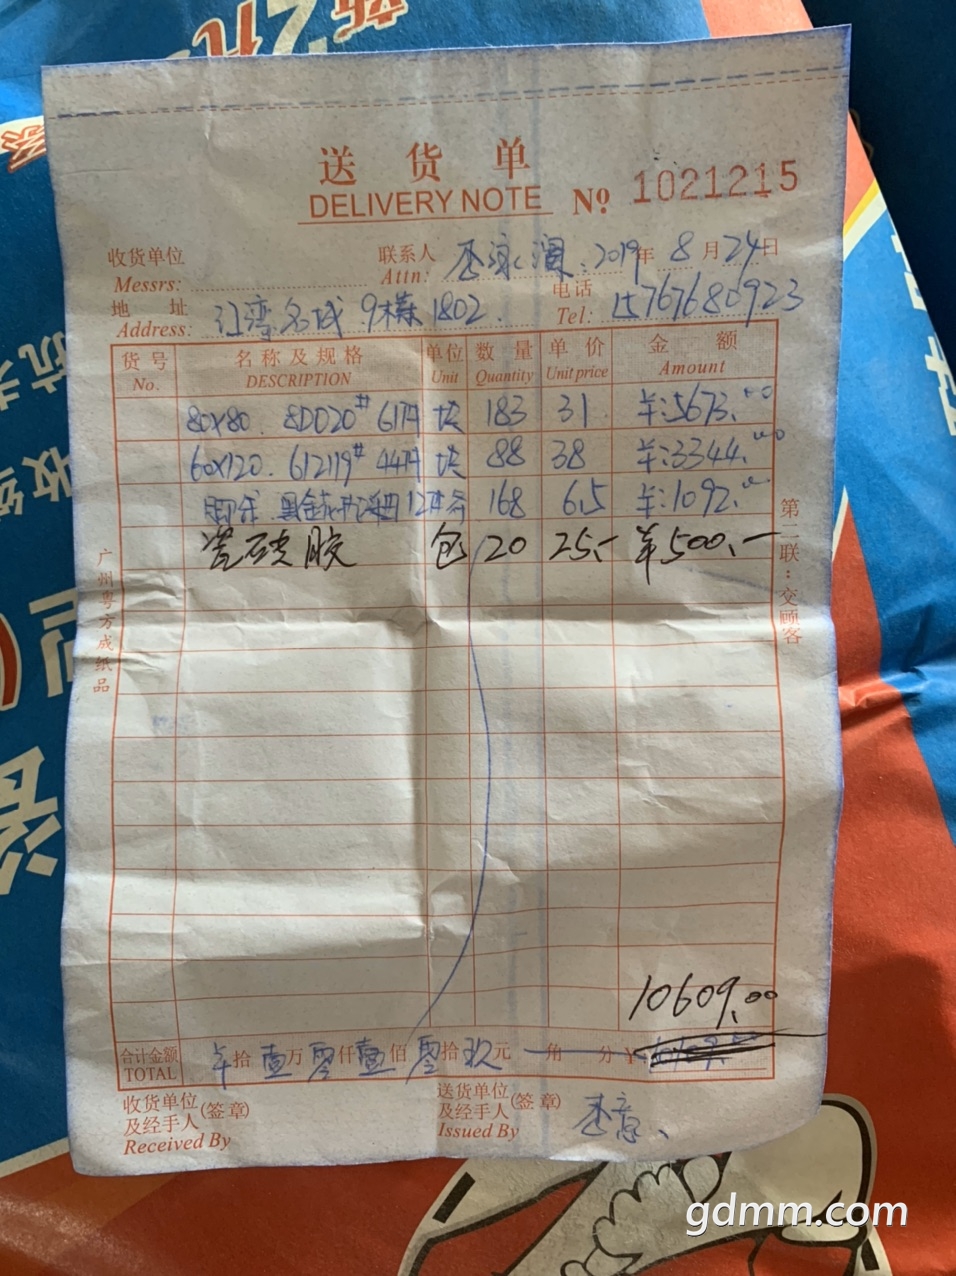 送货单
DELIVERY NOTE № 1021215
收货单位 Messrs:
联系人 Attn: 2019年8月24日
地址 Address: 江湾名城 9栋1802.
电话 Tel: 15767680923
货号 No. 名称及规格 DESCRIPTION 单位 Unit 数量 Quantity 单价 Unit price 金额 Amount
80x80. 8D020# 61件 块 183 31 ¥:5673.00
60x120. 612119# 44件 块 88 38 ¥:3344.00
168 6.5 ¥:1092.00
瓷砖胶 包 20 25.- ¥500.-
10609.00
合计金额 TOTAL ¥拾壹万零仟壹佰零拾玖元 角 分 ¥
收货单位及经手人(签章) Received By
送货单位及经手人(签章) Issued By
第二联:交顾客
广州粤方成纸品
gdmm.com